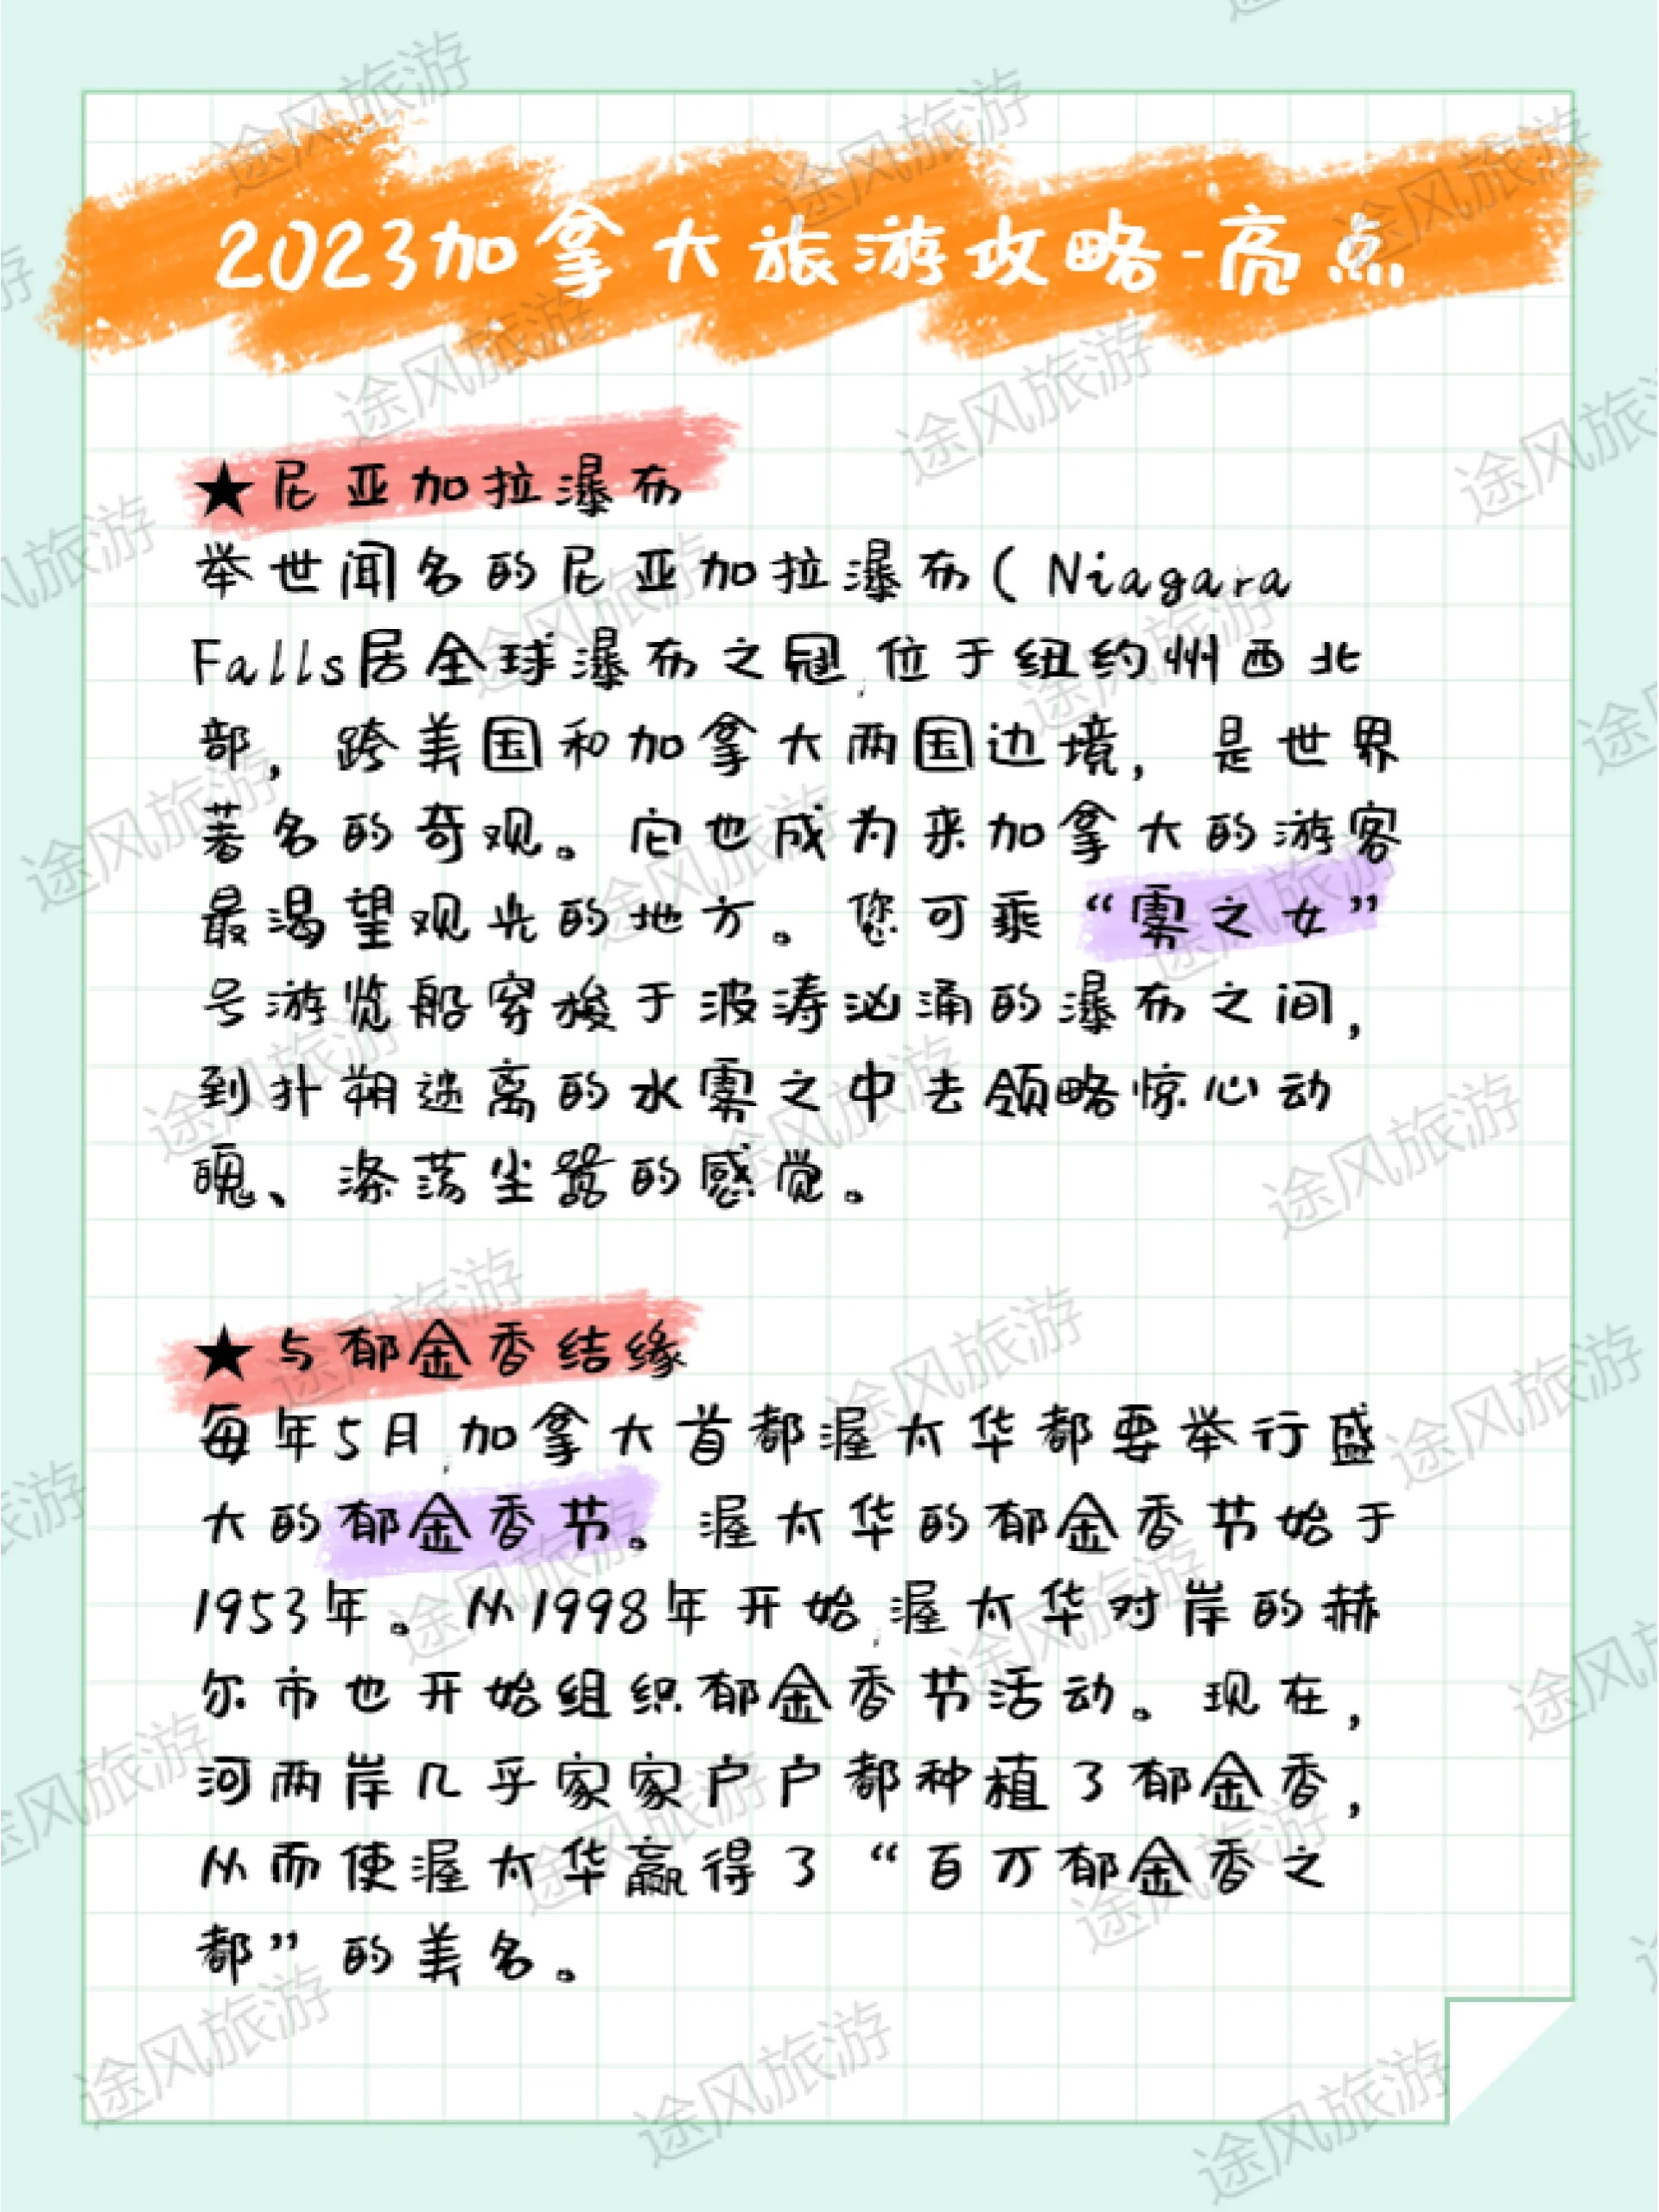 2023加拿大旅游攻略-亮点
★尼亚加拉瀑布
举世闻名的尼亚加拉瀑布(Niagara
Falls居全球瀑布之冠,位于纽约州西北
部，跨美国和加拿大两国边境，是世界
著名的奇观。它也成为来加拿大的游客
最渴望观光的地方。您可乘“雾之女”
号游览船穿梭于波涛汹涌的瀑布之间，
到扑朔迷离的水雾之中去领略惊心动
魄、涤荡尘嚣的感觉。
★与郁金香结缘
每年5月,加拿大首都渥太华都要举行盛
大的郁金香节。渥太华的郁金香节始于
1953年。从1998年开始,渥太华对岸的赫
尔市也开始组织郁金香节活动。现在，
河两岸几乎家家户户都种植了郁金香，
从而使渥太华赢得了“百万郁金香之
都”的美名。
途风旅游